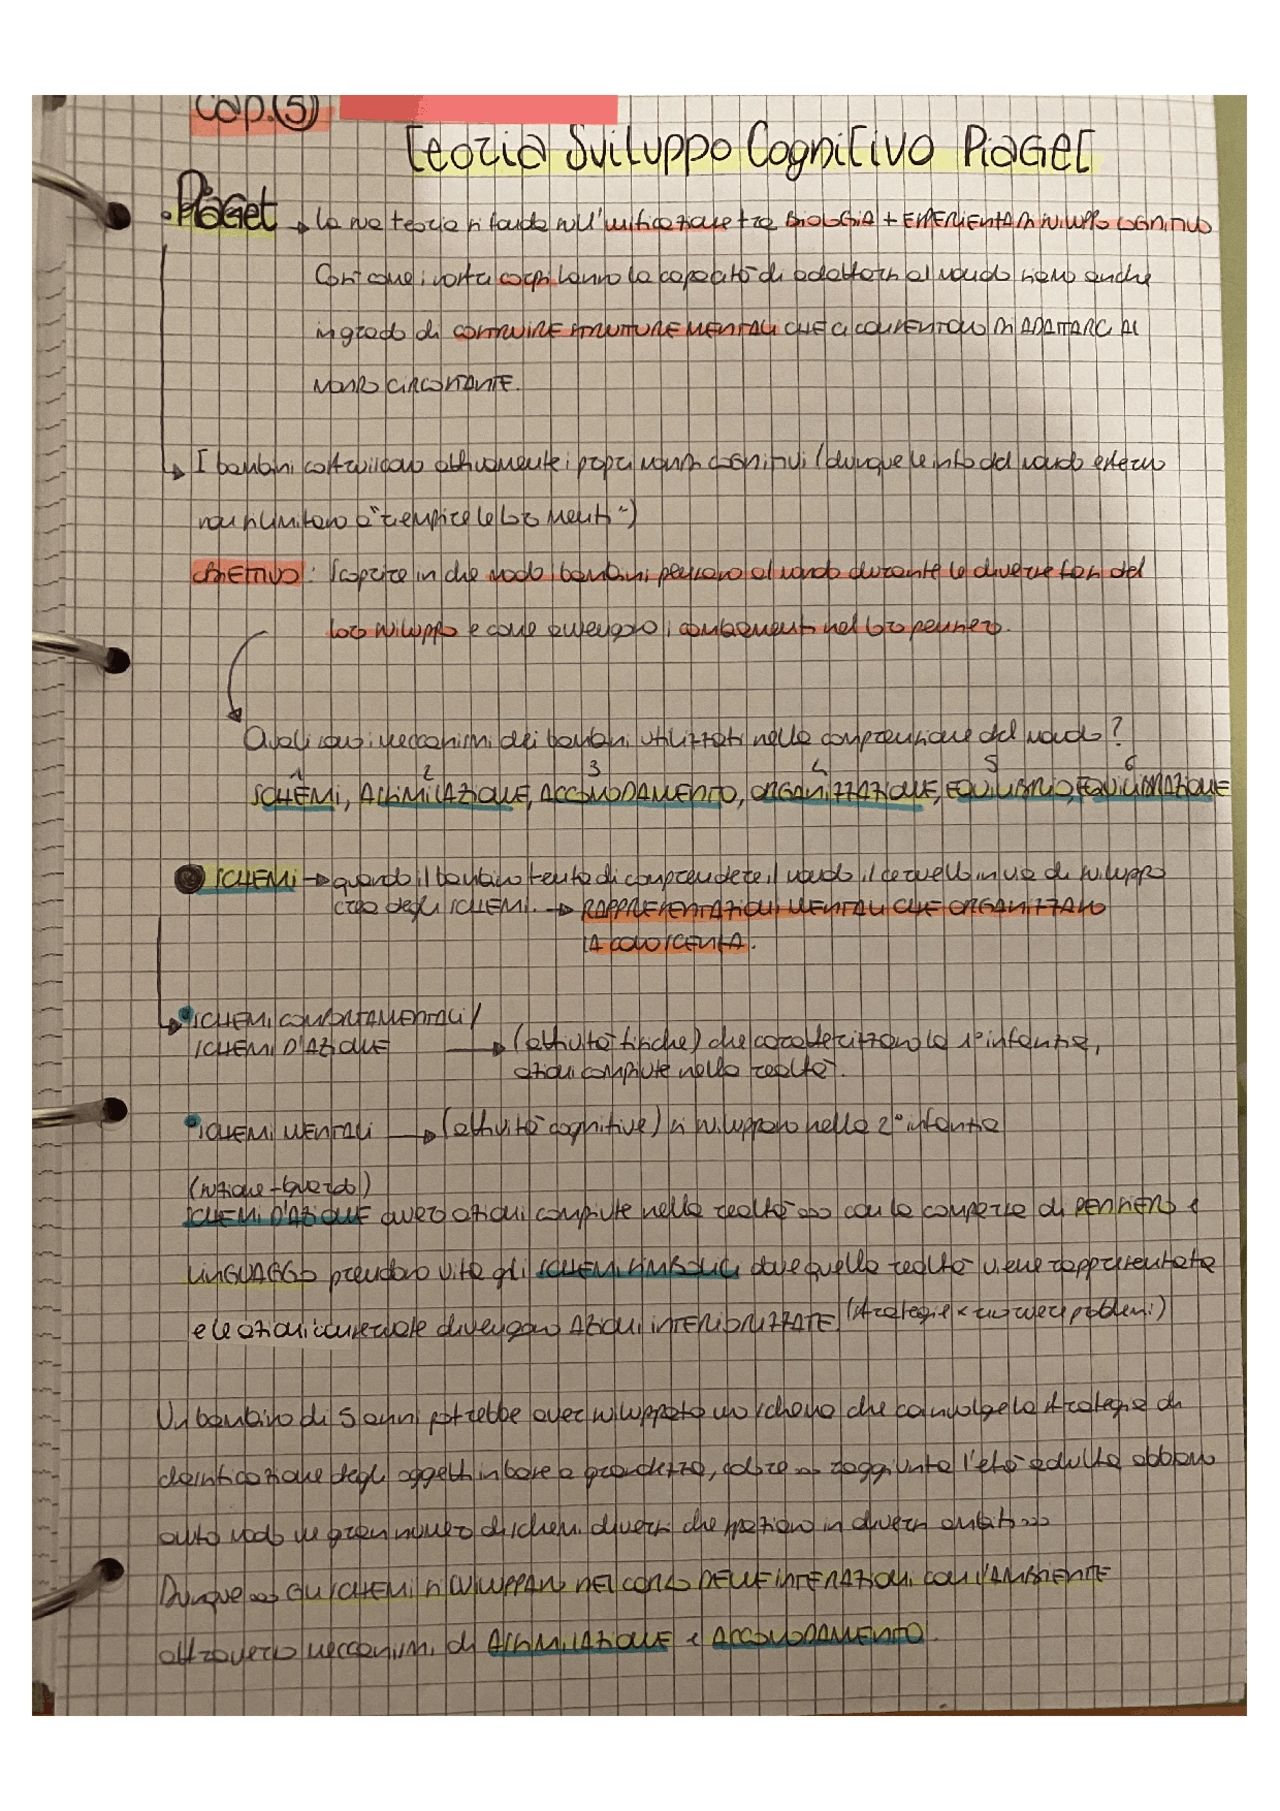 Cap.(5)
Teoria Sviluppo Cognitivo Piaget
• Piaget → la sua teoria si fonda sull'unificazione tra BIOLOGIA + ESPERIENZA IN SVILUPPO COGNITIVO
Così come i nostri corpi hanno la capacità di adattarsi al mondo siamo anche
in grado di COSTRUIRE STRUTTURE MENTALI CHE CI CONSENTONO DI ADATTARCI AL
MONDO CIRCOSTANTE.
→ I bambini costruiscono attivamente i propri mondi cognitivi (dunque le info dal mondo esterno
non si limitano a "riempire le loro menti")
OBIETTIVO: Scoprire in che modo i bambini pensano al mondo durante le diverse fasi del
loro sviluppo e come avvengono i cambiamenti nel loro pensiero.
Quali sono i meccanismi dei bambini utilizzati nella comprensione del mondo?
1 2 3 4 5 6
SCHEMI, ASSIMILAZIONE, ACCOMODAMENTO, ORGANIZZAZIONE, EQUILIBRIO, EQUILIBRAZIONE
SCHEMI → quando il bambino tenta di comprendere il mondo il cervello in via di sviluppo
crea degli SCHEMI. → RAPPRESENTAZIONI MENTALI CHE ORGANIZZANO
LA CONOSCENZA.
• SCHEMI COMPORTAMENTALI/
SCHEMI D'AZIONE → (attività fisiche) che caratterizzano la 1° infanzia,
azioni compiute nella realtà.
• SCHEMI MENTALI → (attività cognitive) si sviluppano nella 2° infanzia
(suzione-sguardo)
SCHEMI D'AZIONE ovvero azioni compiute nella realtà con la comparsa di PENSIERO e
LINGUAGGIO prendono vita gli SCHEMI SIMBOLICI dove quella realtà viene rappresentata
e le azioni divengono AZIONI INTERIORIZZATE. (strategie x risolvere problemi)
Un bambino di 5 anni potrebbe aver sviluppato uno schema che coinvolge la strategia di
classificazione degli oggetti in base a grandezza, colore raggiunta l'età adulta abbiamo
un gran numero di schemi diversi che spaziano in diversi ambiti
Dunque GLI SCHEMI SI SVILUPPANO NEL CORSO DELLE INTERAZIONI CON L'AMBIENTE
attraverso meccanismi di ASSIMILAZIONE e ACCOMODAMENTO.